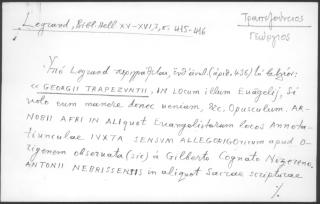 Legrand, Bibl. Hell XV-XVI, 3, σ. 415-416
Τραπεζούντιος
Γεώργιος
Ὑπό Legrand περιγράφεται,
GEORGII TRAPEZUNTII, IN Locum illum Euāgelij, Si
volo eum manere donec veniam, &c. Opusculum. AR-
NOBII AFRI IN ALIquot Euangelistarum locos Annota-
tiunculae IUXTA SENSUM ALLEGORIGORICUM apud O-
rigenem obseruata (sic) à Gilberto Cognato Nozereno.
ANTONII NEBRISSENSIS in aliquot Sacrae scripturae
·/.